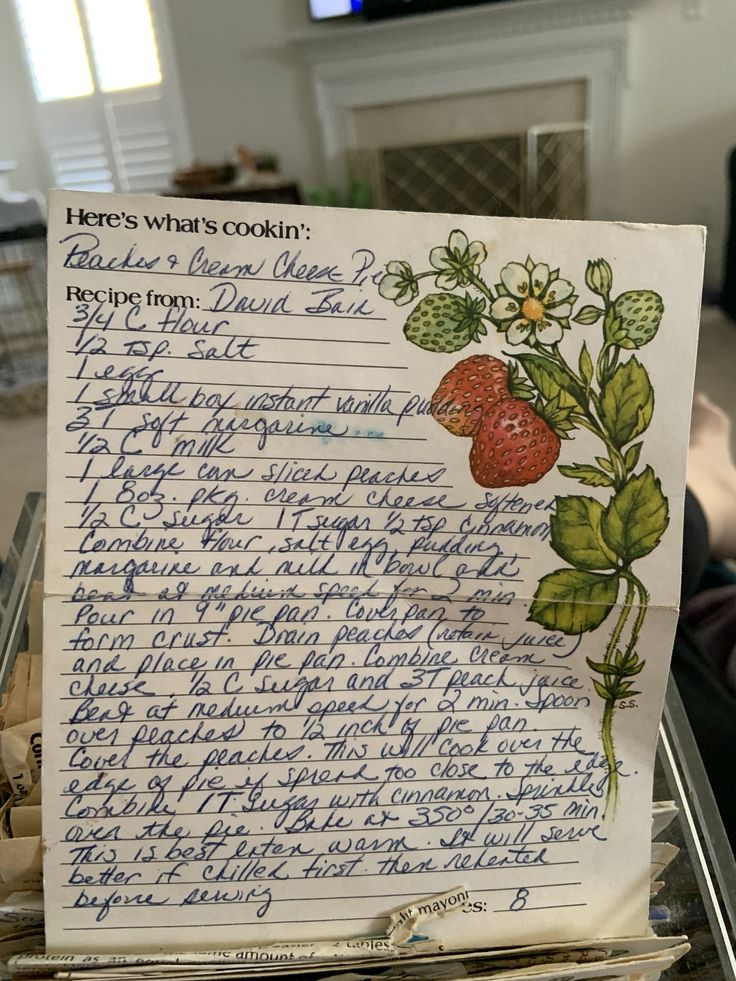 Here's what's cookin':
Peaches & Cream Cheese Pie
Recipe from: David Bain
3/4 C flour
1/2 tsp. salt
1 egg
1 small box instant vanilla pudding
3 T soft margarine
1/2 C milk
1 large can sliced peaches
1 8oz. pkg. cream cheese softened
1/2 C sugar 1 T sugar 1/2 tsp cinnamon
Combine flour, salt egg, pudding,
margarine and milk in bowl and
beat at medium speed for 2 min.
Pour in 9" pie pan. Cover pan to
form crust. Drain peaches (retain juice)
and place in pie pan. Combine cream
cheese, 1/2 C sugar and 3 T peach juice.
Beat at medium speed for 2 min. Spoon
over peaches to 1/2 inch of pie pan.
Cover the peaches. This will cook over the
edge of pie if spread too close to the edge.
Combine 1 T sugar with cinnamon. Sprinkle
over the pie. Bake at 350°/30-35 min.
This is best eaten warm. It will serve
better if chilled first. then reheated
before serving
es: 8
S.S.
ht mayon
protein as an
amount of
tables